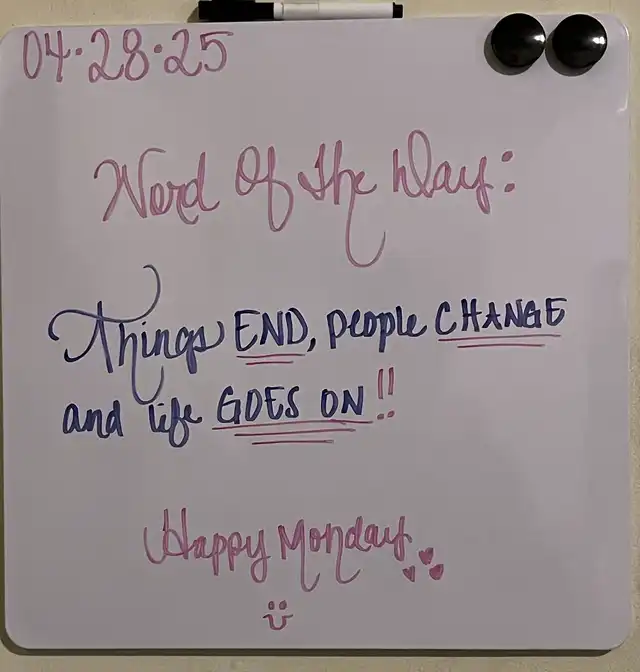 04·28·25
Word Of the Day:
Things END, people CHANGE
and life GOES ON!!
Happy Monday